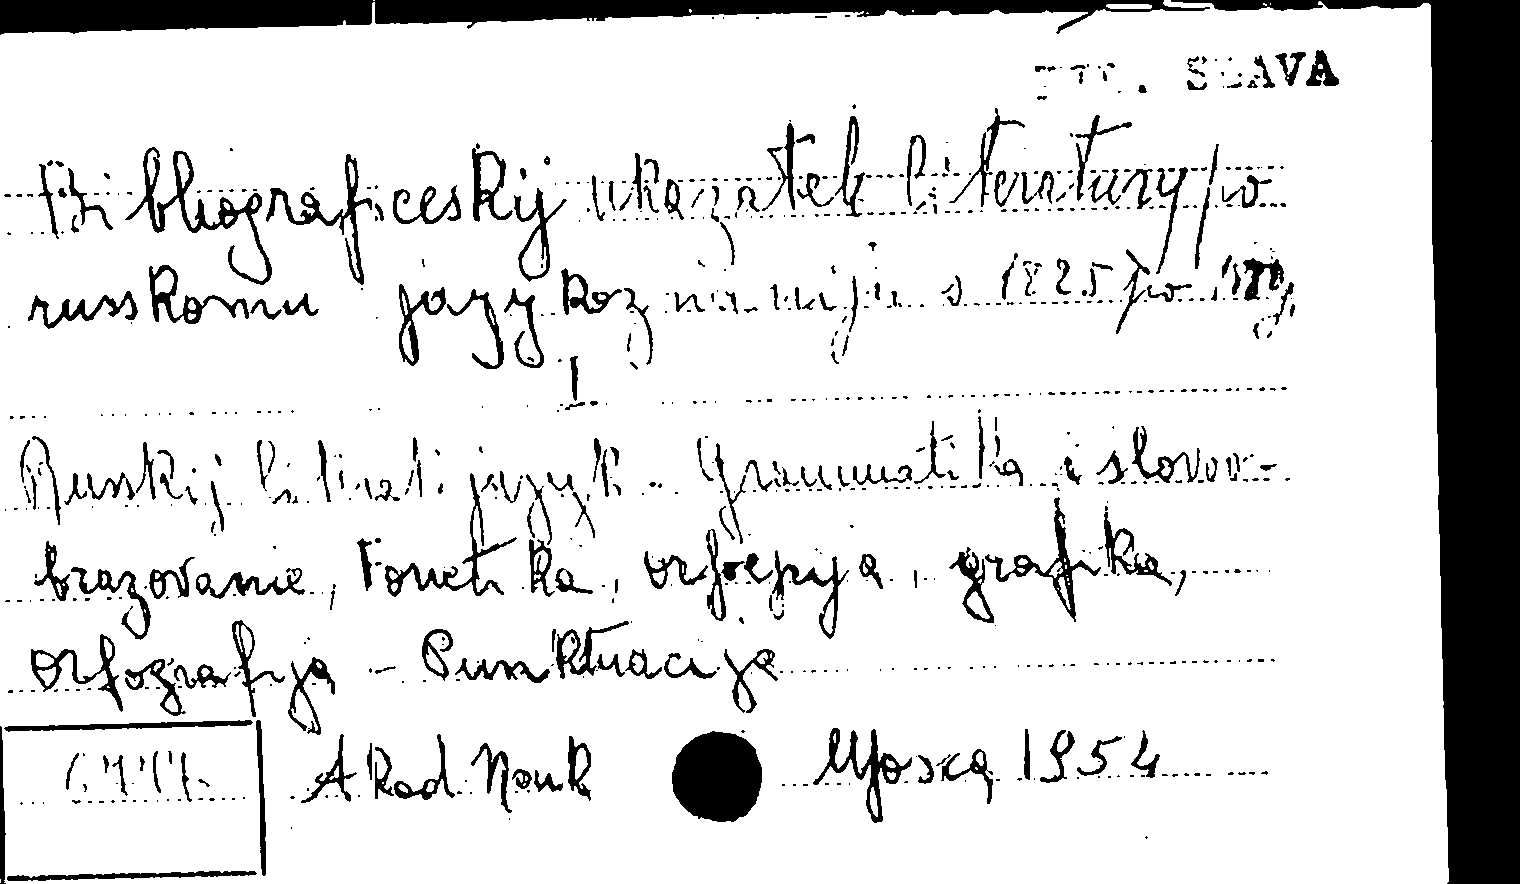 SLAVA
Bibliograficeskij ukazatelь literatury po
russkomu jazykoznaniju s 1825 po
I
Russkij jazyk - Grammatika i slovoo-
brazovanie, Fonetika, orfoepija, grafika,
Orfografija - Punktuacija
Akad Nauk Moska 1954